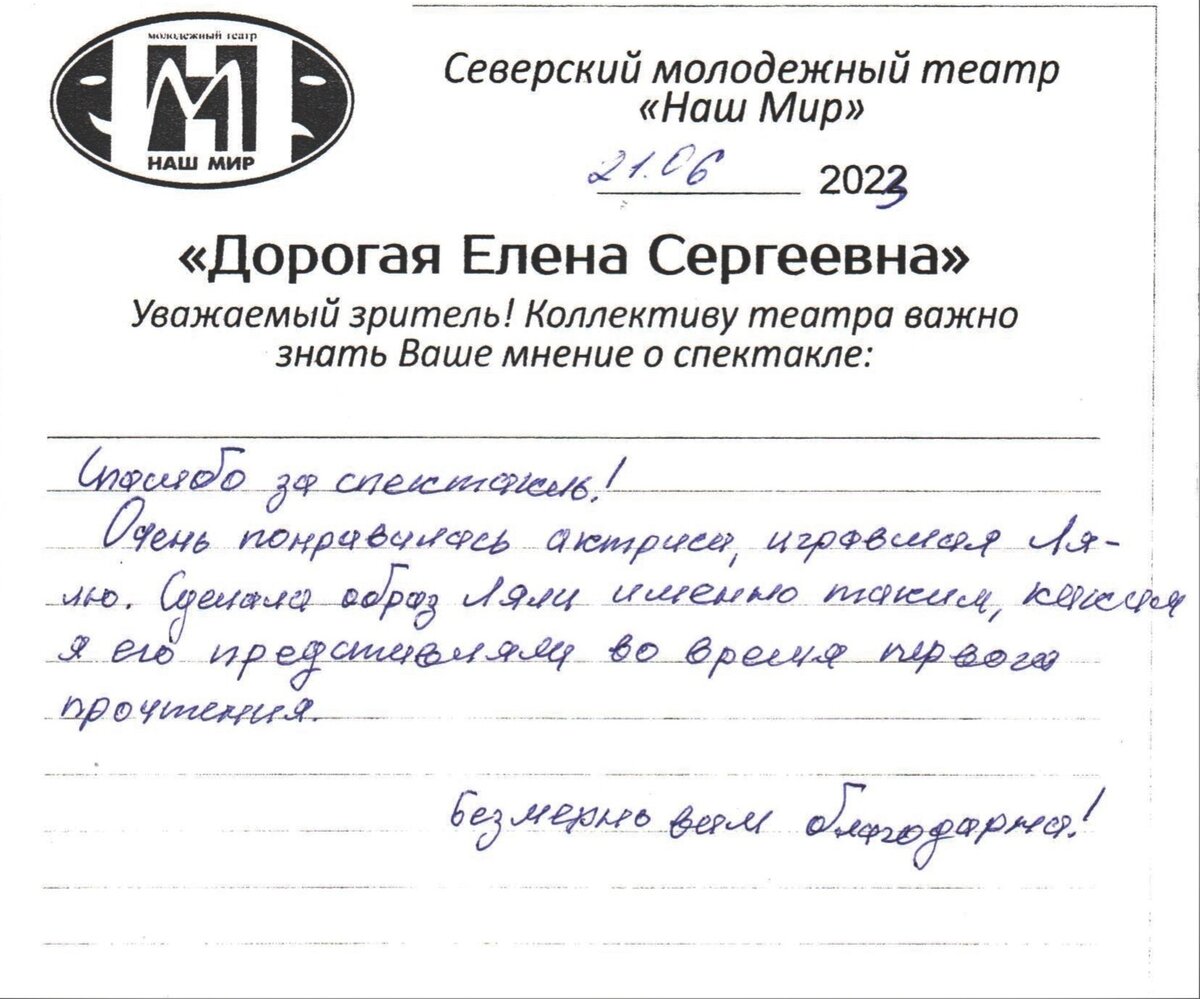 молодежный театр
НАШ МИР
Северский молодежный театр
«Наш Мир»
21.06 2023
«Дорогая Елена Сергеевна»
Уважаемый зритель! Коллективу театра важно
знать Ваше мнение о спектакле:
Спасибо за спектакль!
Очень понравилась актриса, игравшая Ля-
лю. Сделала образ Ляли именно таким, каким
я его представляла во время первого
прочтения.
Безмерно вам благодарна!